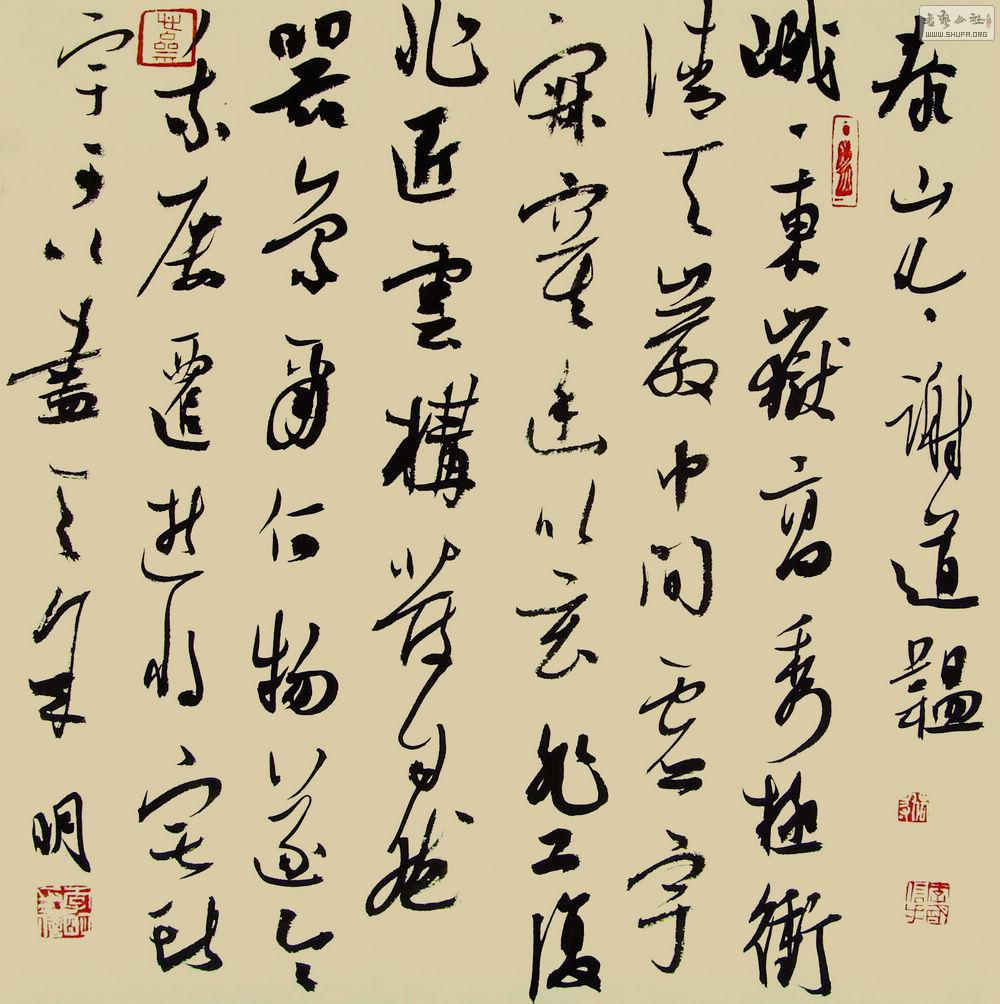 書藝公社
WWW.SHUFA.ORG
泰山吟謝道韞
峨、東嶽高秀極衝
清天巖中間虛宇
寂寞幽以玄非工復
非匠雲構發自然
器象爾何物遂令
我屢遷逝將宅斯
宇可以盡天年 明